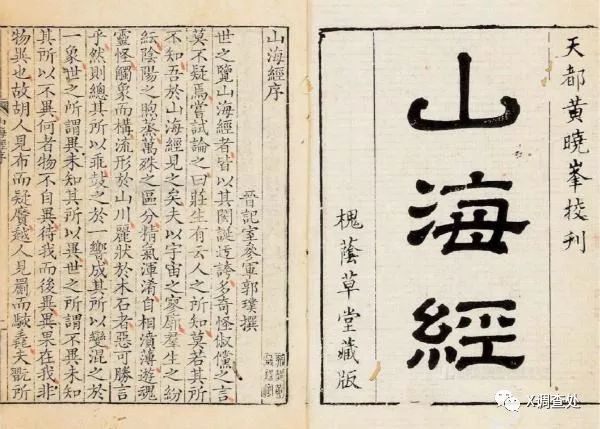 天都黃曉峯挍刊
山海經
槐蔭草堂藏版
山海經序
晉記室參軍郭璞撰
世之覽山海經者皆以其閎誕迂誇多奇怪俶儻之言
莫不疑焉嘗試論之曰莊生有云人之所知莫若其所
不知吾於山海經見之矣夫以宇宙之寥廓羣生之紛
紜陰陽之煦蒸萬殊之區分精氣渾淆自相濆薄遊魂
靈怪觸象而構流形於山川麗狀於木石者惡可勝言
乎然則總其所以乖鼓之於一響成其所以變混之於
一象世之所謂異未知其所以異世之所謂不異未知
其所以不異何者物不自異待我而後異異果在我非
物異也故胡人見布而疑黂越人見罽而駭毳夫翫所
山海經序
X调查处